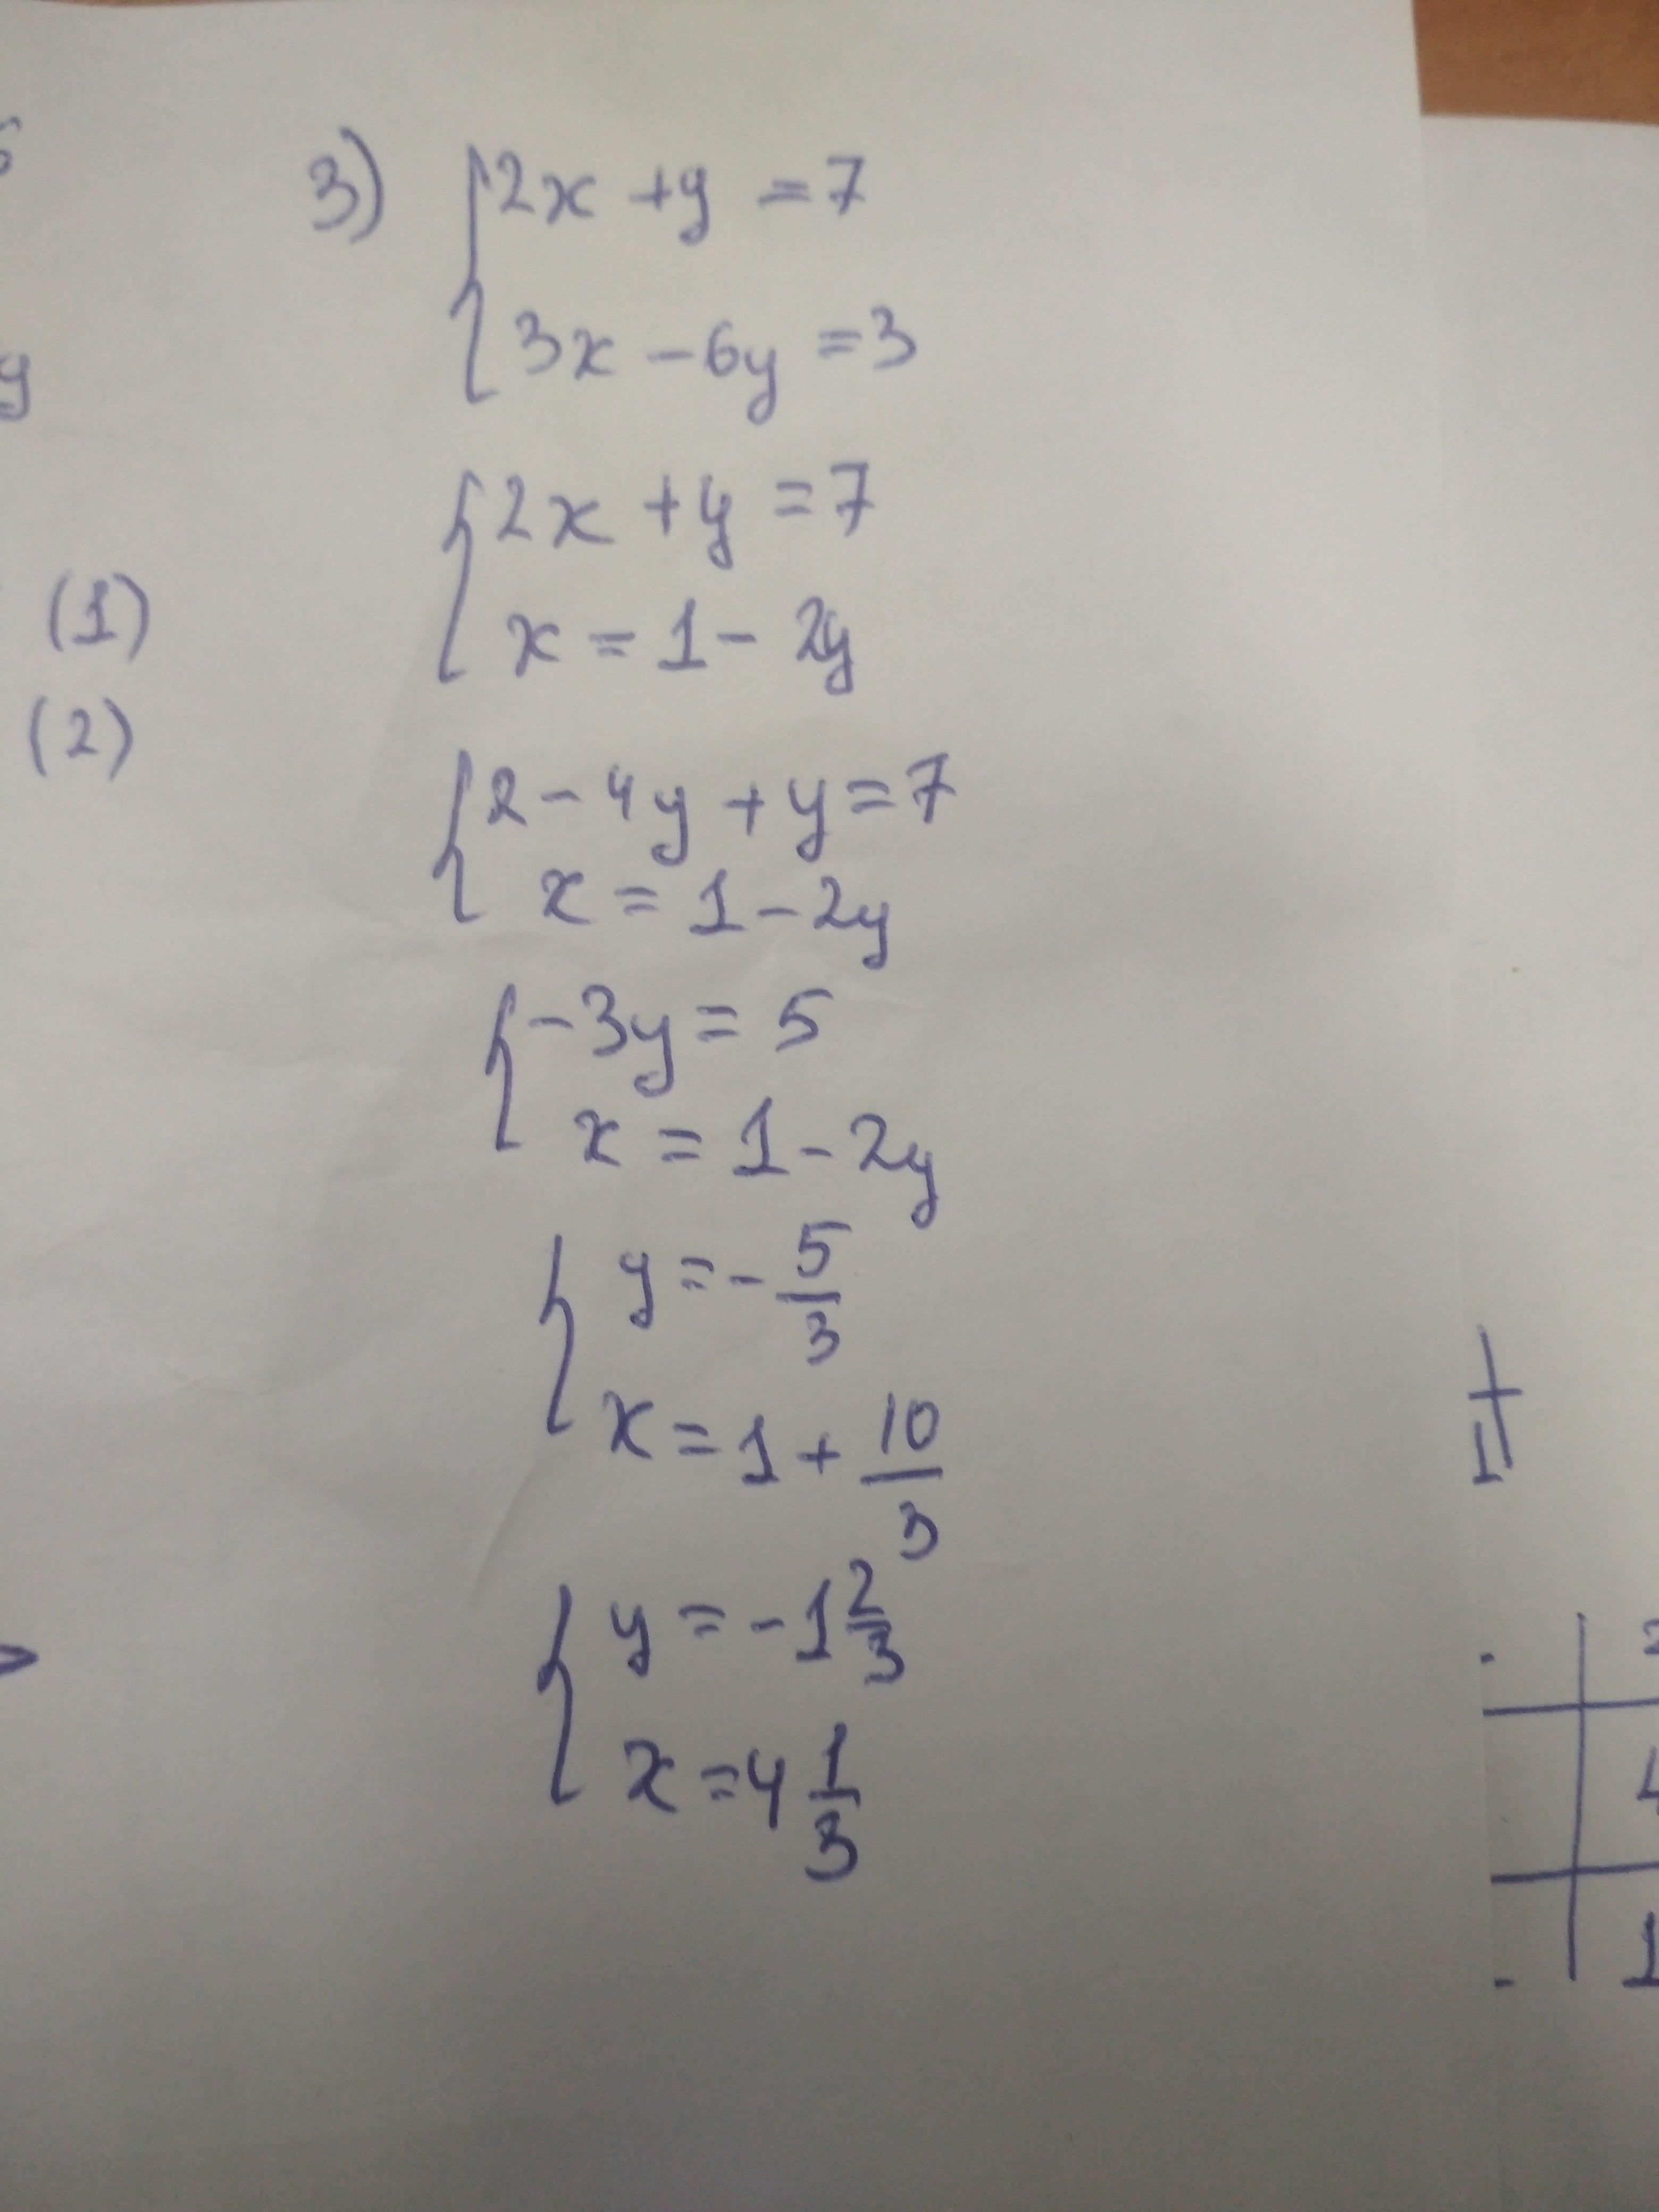 3) { 2x + y = 7
3x - 6y = 3
{ 2x + y = 7
x = 1 - 2y
(1)
(2)
{ 2 - 4y + y = 7
x = 1 - 2y
{ -3y = 5
x = 1 - 2y
{ y = - 5/3
x = 1 + 10/3
{ y = -1 2/3
x = 4 1/3
y
1